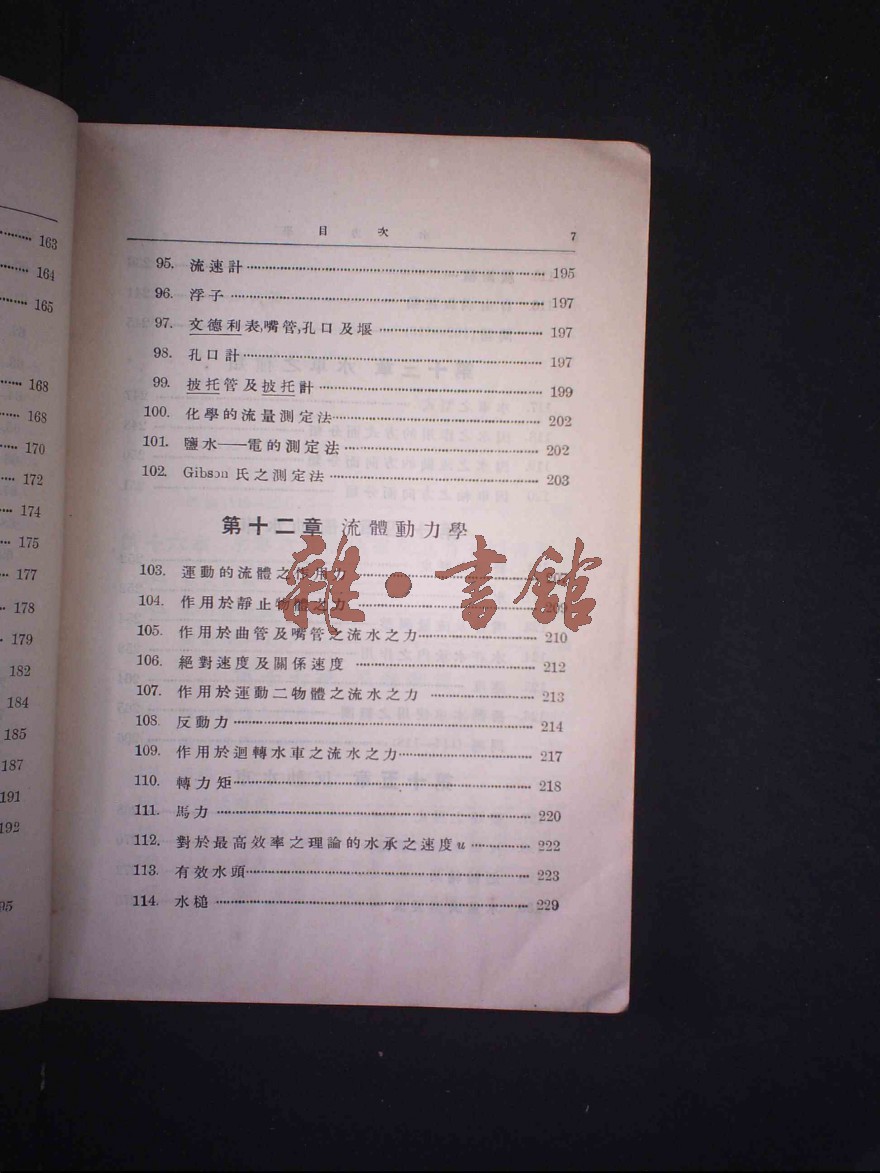 163
164
165
168
168
170
172
174
175
177
178
179
182
184
185
187
191
192
95
目 次 7
95. 流速計 195
96. 浮子 197
97. 文德利表,嘴管,孔口及堰 197
98. 孔口計 197
99. 披托管及披托計 199
100. 化學的流量測定法 202
101. 鹽水——電的測定法 202
102. Gibson 氏之測定法 203
第十二章 流體動力學
103. 運動的流體之作用力
104. 作用於靜止物體之力 209
105. 作用於曲管及嘴管之流水之力 210
106. 絕對速度及關係速度 212
107. 作用於運動二物體之流水之力 213
108. 反動力 214
109. 作用於迴轉水車之流水之力 217
110. 轉力矩 218
111. 馬力 220
112. 對於最高效率之理論的水承之速度u 222
113. 有效水頭 223
114. 水槌 229
雜·書館